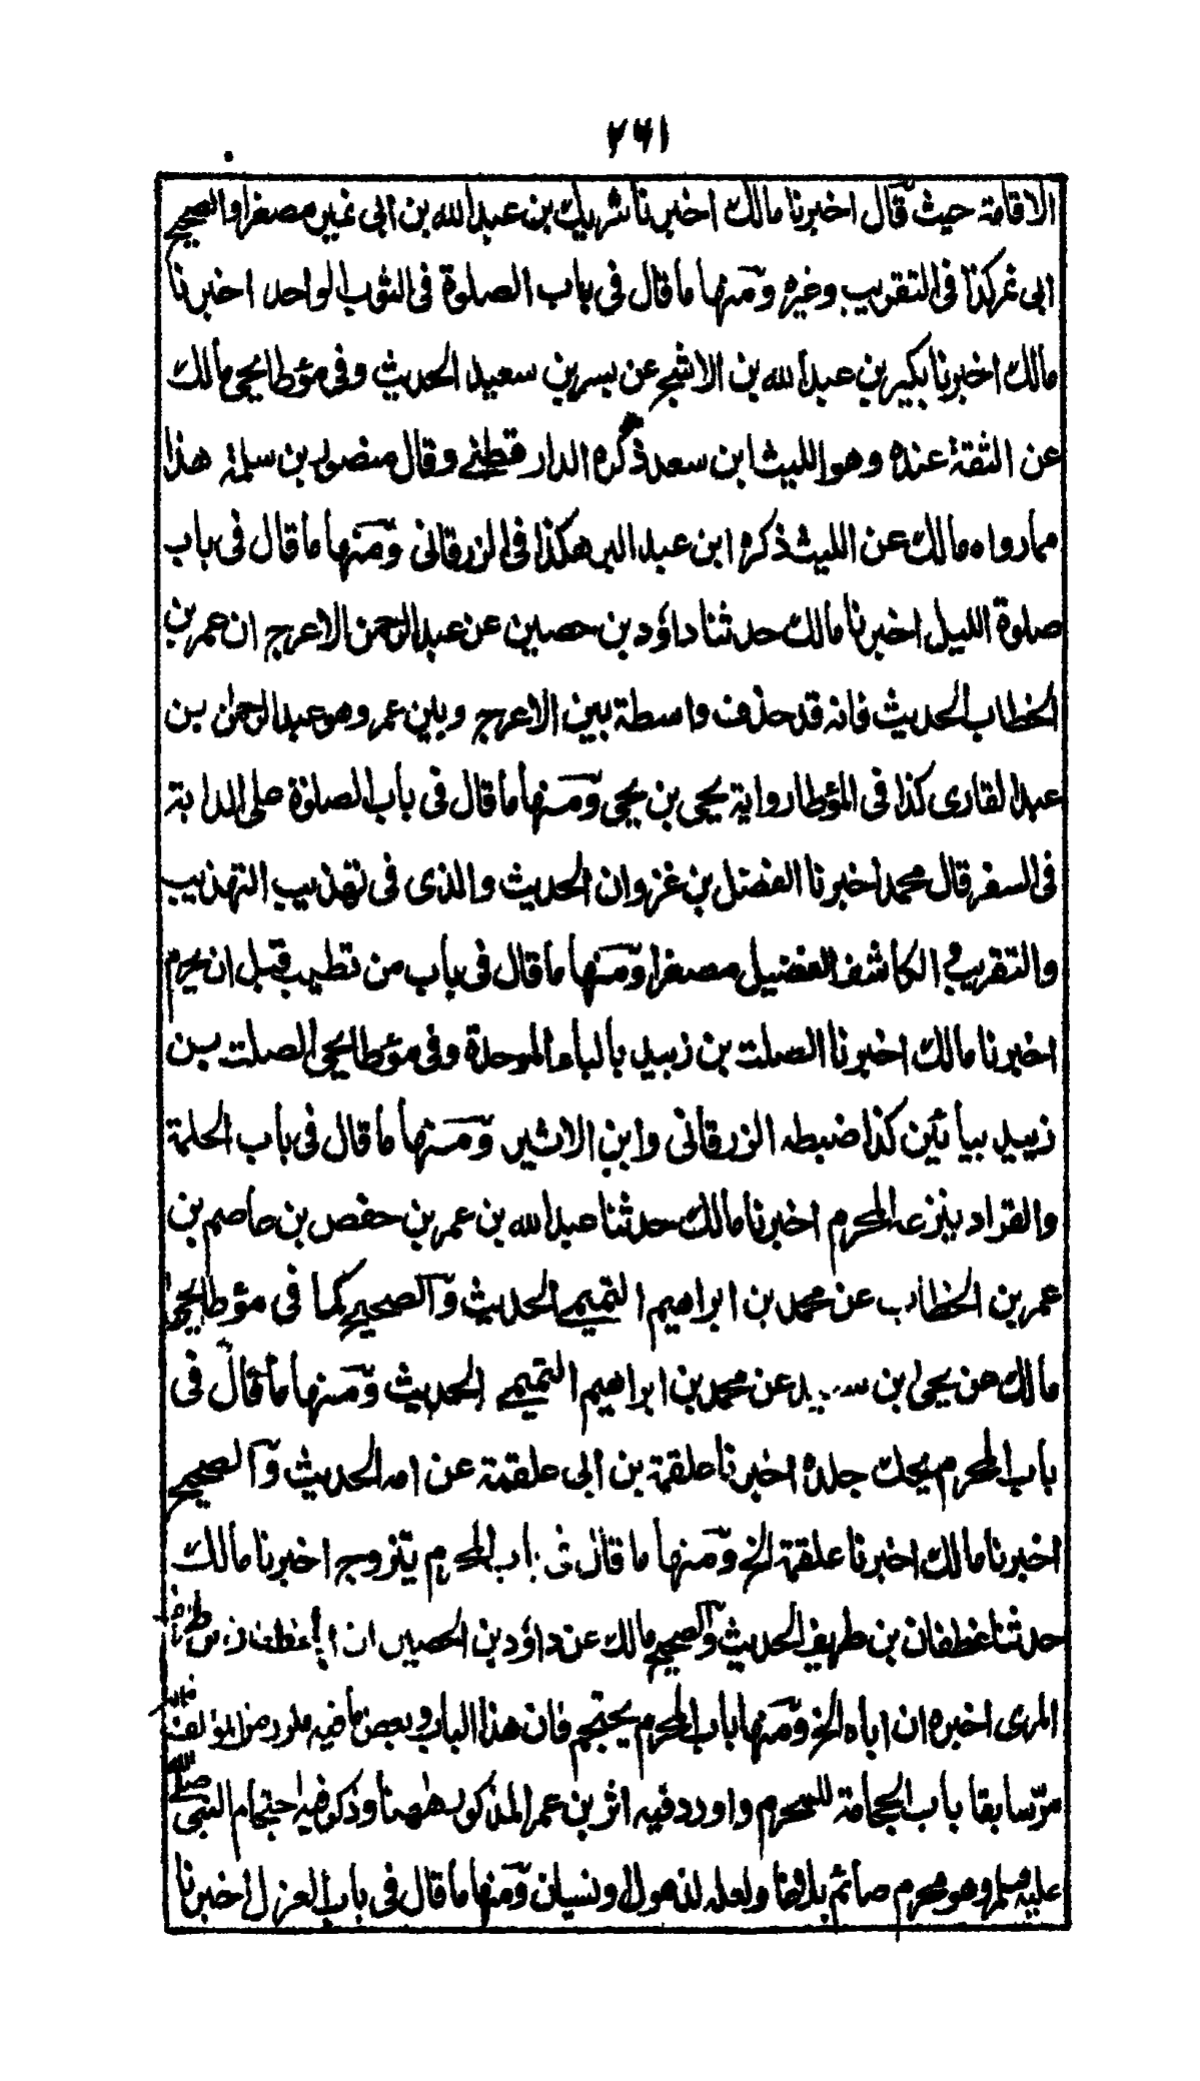 ۲۶۱
الاقامة حيث قال اخبرنا مالك اخبرنا شريك بن عبدالله بن ابى نمير مصغرا والصحيح
ابى نمر كذا فى التقريب وغيره ومنها ما قال فى باب الصلوة فى الثوب الواحد اخبرنا
مالك اخبرنا بكير بن عبدالله بن الاشج عن بسر بن سعيد الحديث وفى مؤطا يحيى مالك
عن الثقة عنده وهو الليث ابن سعد ذكره الدارقطنى وقال منصور بن سلمة هذا
مما رواه مالك عن الليث ذكره ابن عبد البر هكذا فى الزرقانى ومنها ما قال فى باب
صلوة الليل اخبرنا مالك حدثنا داؤد بن حصين عن عبدالرحمن الاعرج ان عمر بن
الخطاب الحديث فانه قد حذف واسطة بين الاعرج وبين عمر وهو عبدالرحمن بن
عبد القارى كذا فى المؤطا رواية يحيى بن يحيى ومنها ما قال فى باب الصلوة على الدابة
فى السفر قال محمد اخبرنا الفضل بن غزوان الحديث والذى فى تهذيب التهذيب
والتقريب و الكاشف الفضيل مصغرا ومنها ما قال فى باب من تطيب قبل ان يحرم
اخبرنا مالك اخبرنا الصلت بن زبيد بالباء الموحدة وفى مؤطا يحيى الصلت بن
زييد بيائين كذا ضبطه الزرقانى وابن الاثير ومنها ما قال فى باب الحلمة
والقراد ينزعه المحرم اخبرنا مالك حدثنا عبدالله بن عمر بن حفص بن عاصم بن
عمر بن الخطاب عن محمد بن ابراهيم التميمى الحديث والصحيح كما فى مؤطا يحيى
مالك عن يحيى بن سعيد عن محمد بن ابراهيم التميمى الحديث ومنها ما قال فى
باب المحرم يحك جلده اخبرنا علقمة بن ابى علقمة عن امه الحديث والصحيح
اخبرنا مالك اخبرنا علقمة الخ ومنها ما قال فى باب المحرم يتزوج اخبرنا مالك
حدثنا غطفان بن طريف الحديث والصحيح مالك عن داؤد بن الحصين ان ابا غطفان بن طريف
المرى اخبره ان اباه الخ ومنها باب المحرم يحتجم فان هذا الباب وبعض ما فيه مكرر من المؤلف فانه
مر سابقا باب الحجامة للمحرم واورد فيه اثر بن عمر المذكور ههنا وذكر فيه احتجام النبى صلى الله
عليه وسلم وهو محرم صائم بلاغا ولعله لذهول ونسيان ومنها ما قال فى باب العزل اخبرنا